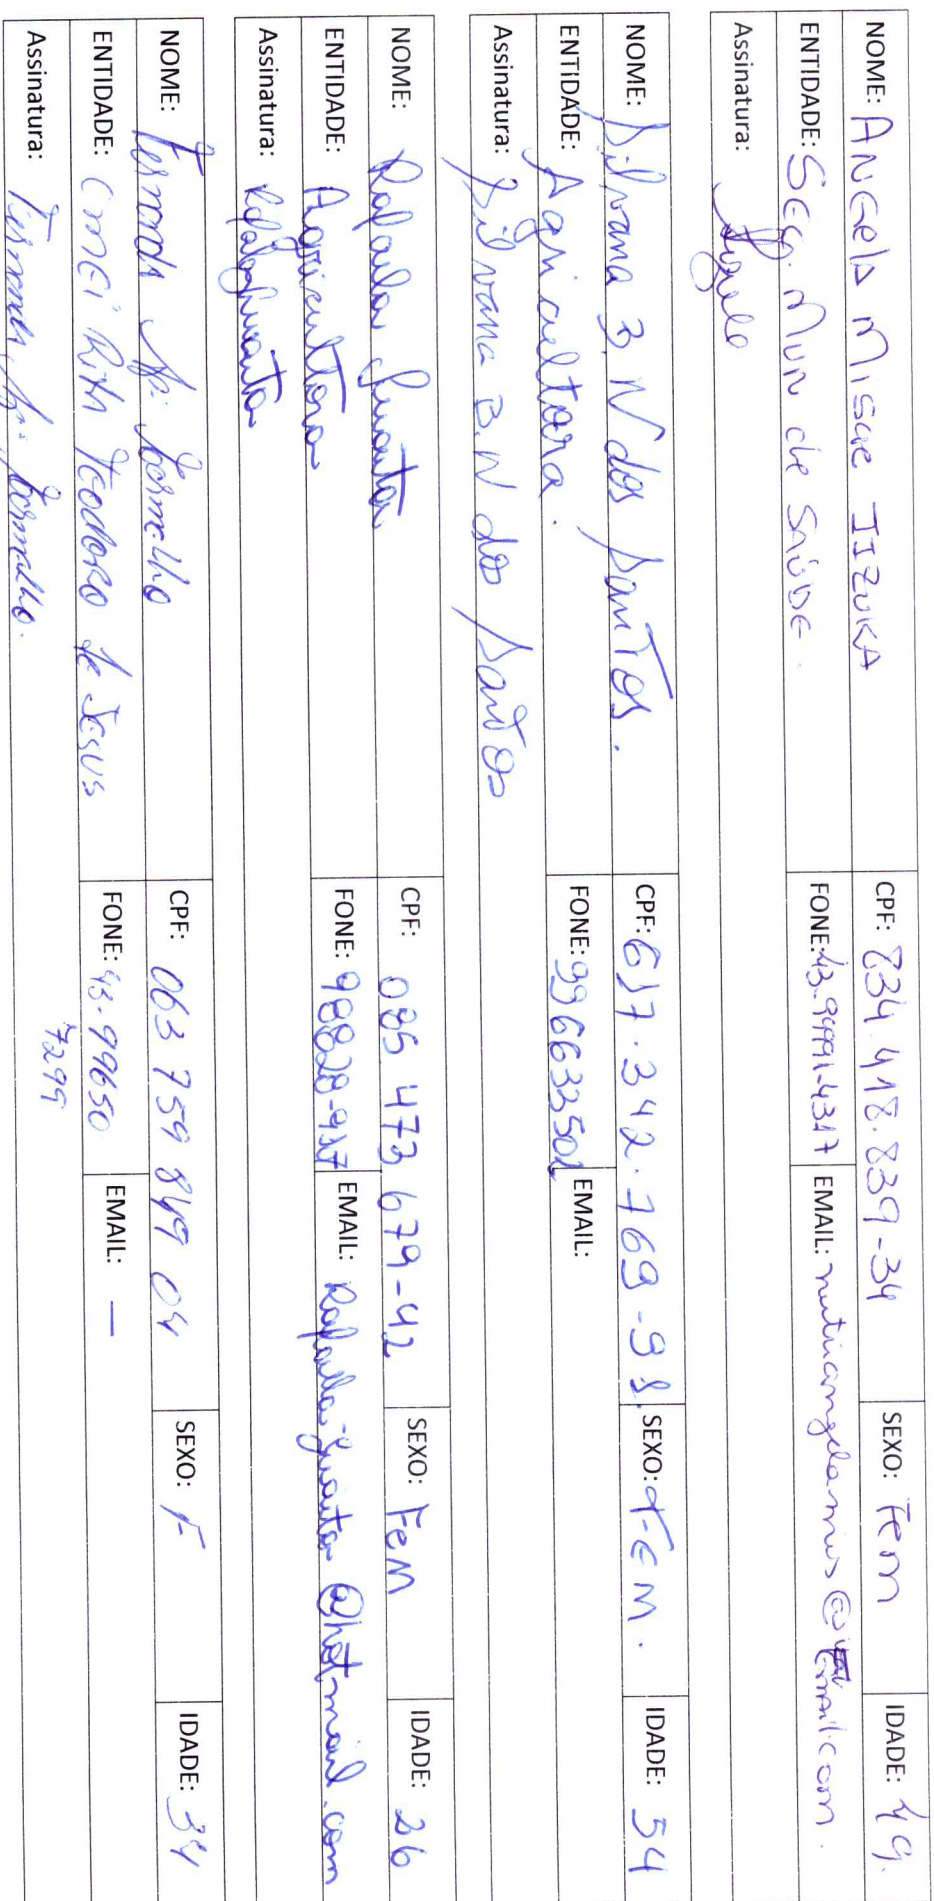 NOME: ANGELA MISAE IIZUKA CPF: 834.418.839-34 SEXO: Fem IDADE: 49.
ENTIDADE: SEC. MUN de SAÚDE. FONE: 43. EMAIL:
Assinatura: Angela
NOME: Silvana B N dos SanTos. CPF: 617.342.769-91. SEXO: FEM. IDADE: 54
ENTIDADE: Agricultora. FONE: 996633501 EMAIL:
Assinatura: Silvana B.N dos Santos
NOME: Rafaela CPF: 085 473 679-42 SEXO: Fem IDADE: 26
ENTIDADE: Agricultora FONE: 98828-9117 EMAIL: @hotmail.com
Assinatura:
NOME: Fernanda Ap. CPF: 063 759 849 04 SEXO: F IDADE: 34
ENTIDADE: CMEI Rita Teodoro de Jesus FONE: 43-99650 EMAIL: —
7299
Assinatura: Fernanda Ap.